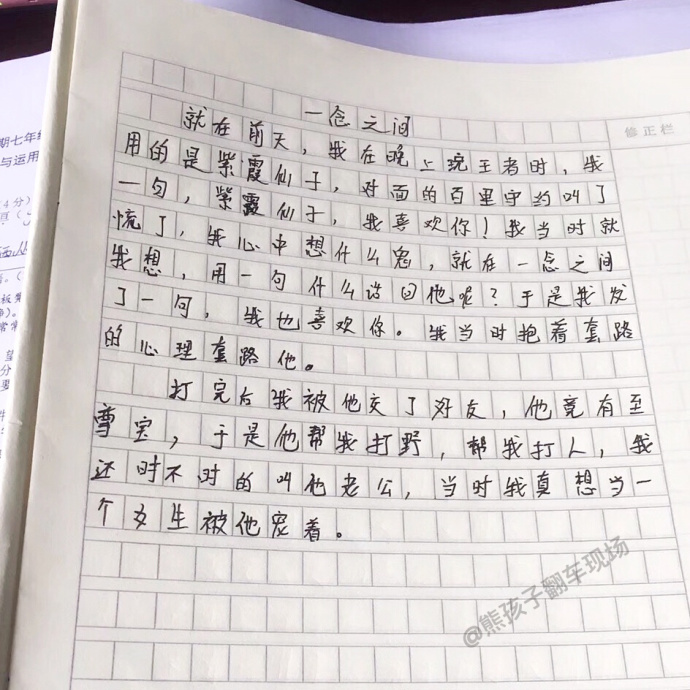 一念之间
就在前天，我在晚上玩王者时，我
用的是紫霞仙子，对面的百里守约叫了
一句，紫霞仙子，我喜欢你！我当时就
慌了，我心中想什么鬼，就在一念之间
我想，用一句什么话回他呢？于是我发
了一句，我也喜欢你。我当时抱着套路
的心理套路他。
打完后我被他交了好友，他竟有至
尊宝，于是他帮我打野，帮我打人，我
还时不时的叫他老公，当时我真想当一
个女生被他宠着。
修正栏
期七年级
与运用
@熊孩子翻车现场